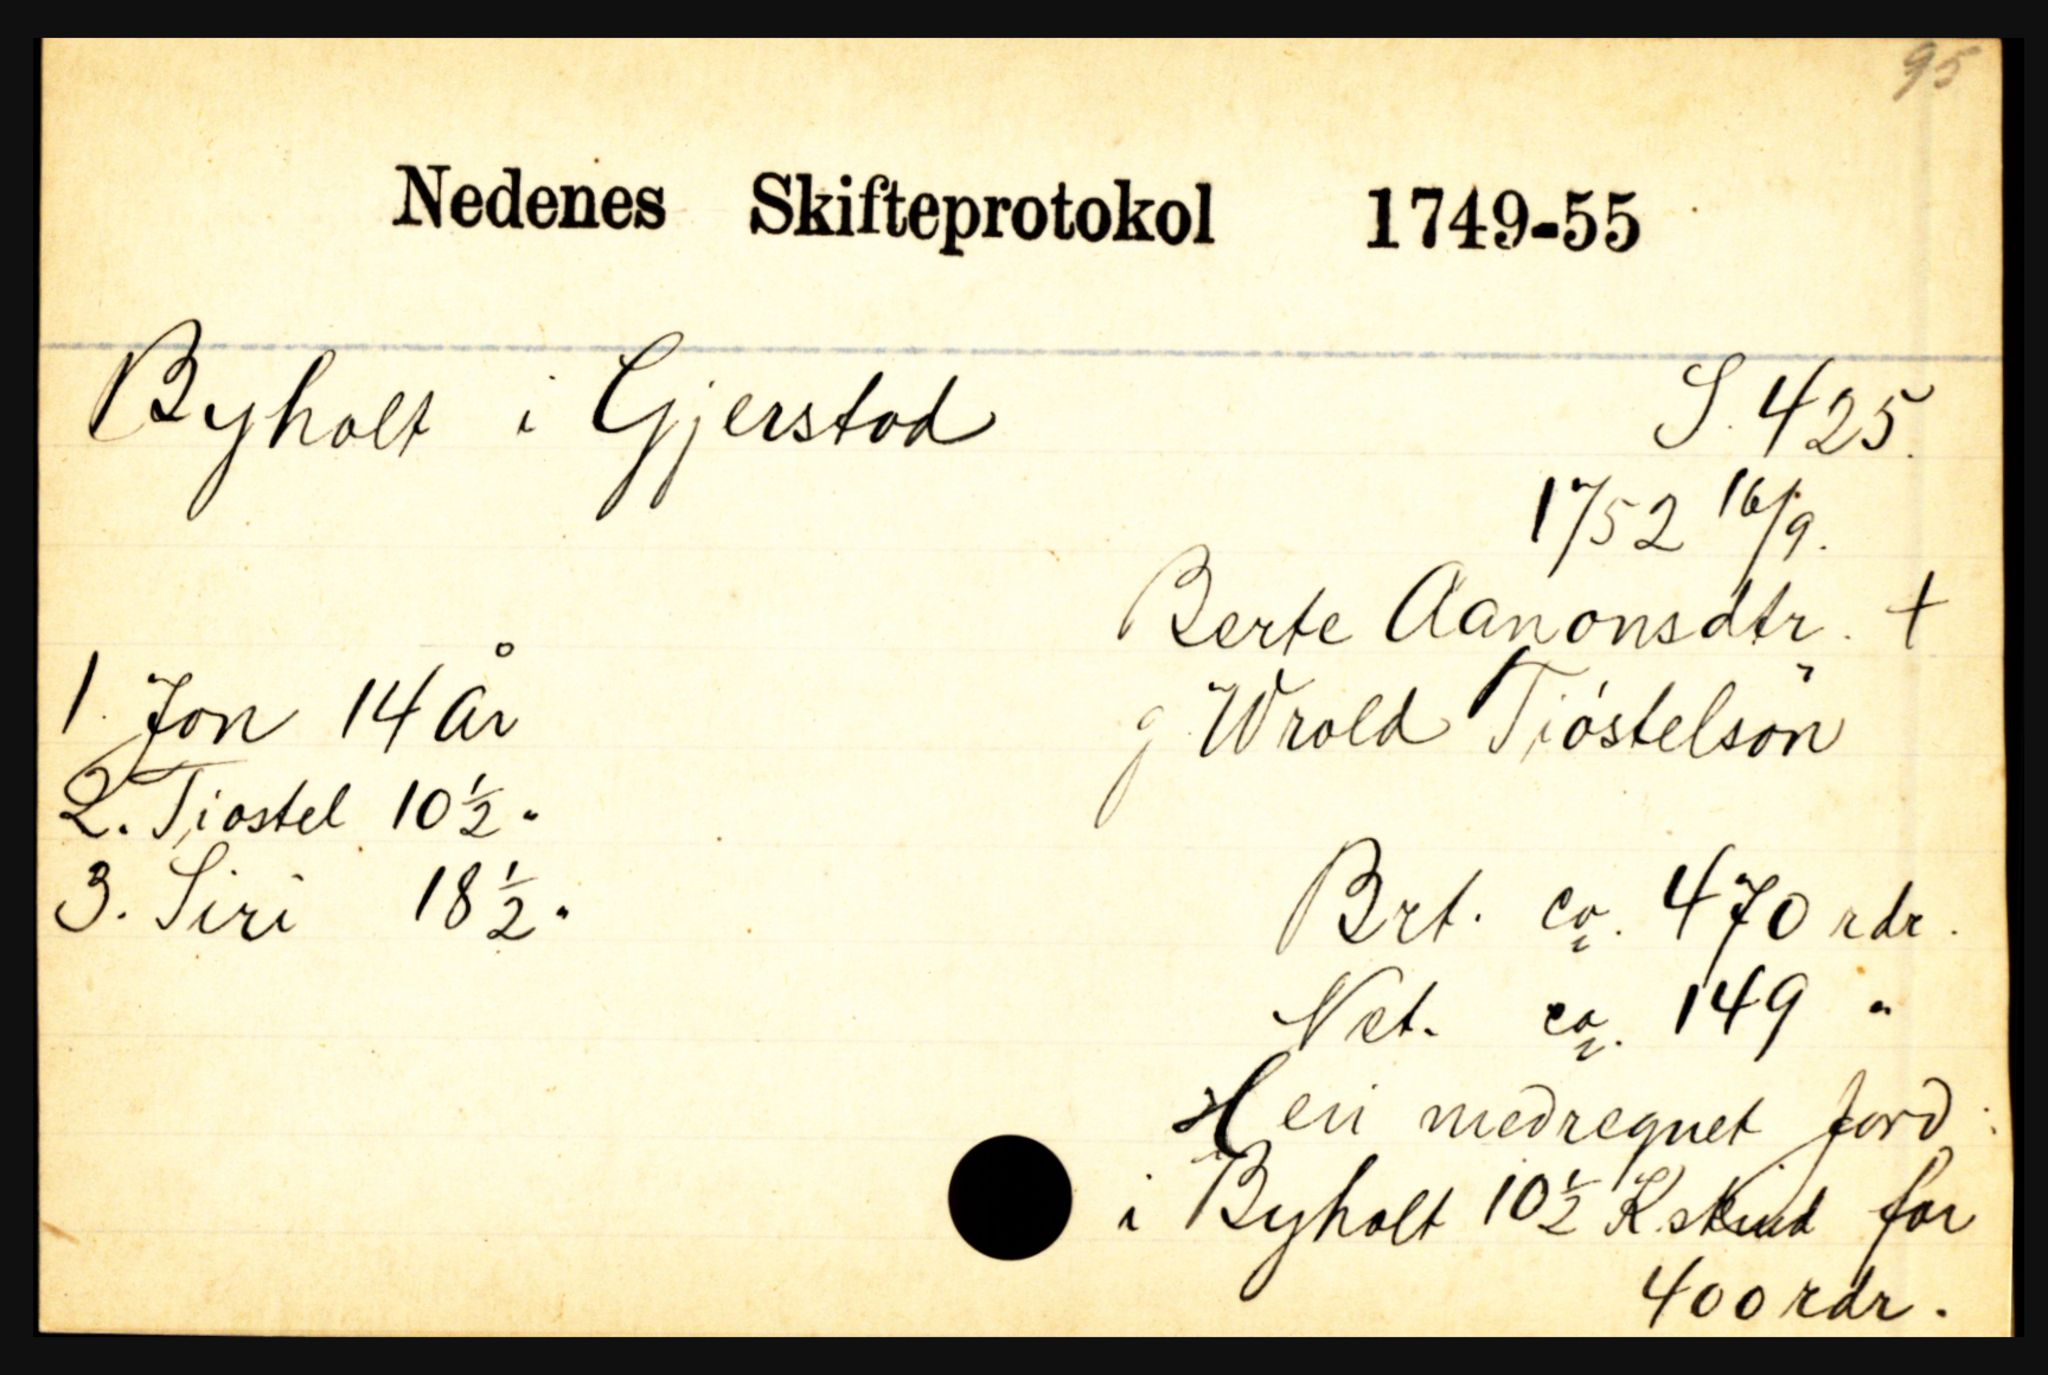 95
Nedenes Skifteprotokol 1749-55
Byholt i Gjerstad
S. 425.
1752 16/9.
Berte Aanonsdtr. +
g. Wrold Tióstelsön
1. Jon 14 år
2. Tiostel 10½ "
3. Siri 18½ "
Brt. ca. 470 rdr.
Net. ca. 149 "
Heri medregnet jord
i Byholt 10½ K.skind for
400 rdr.